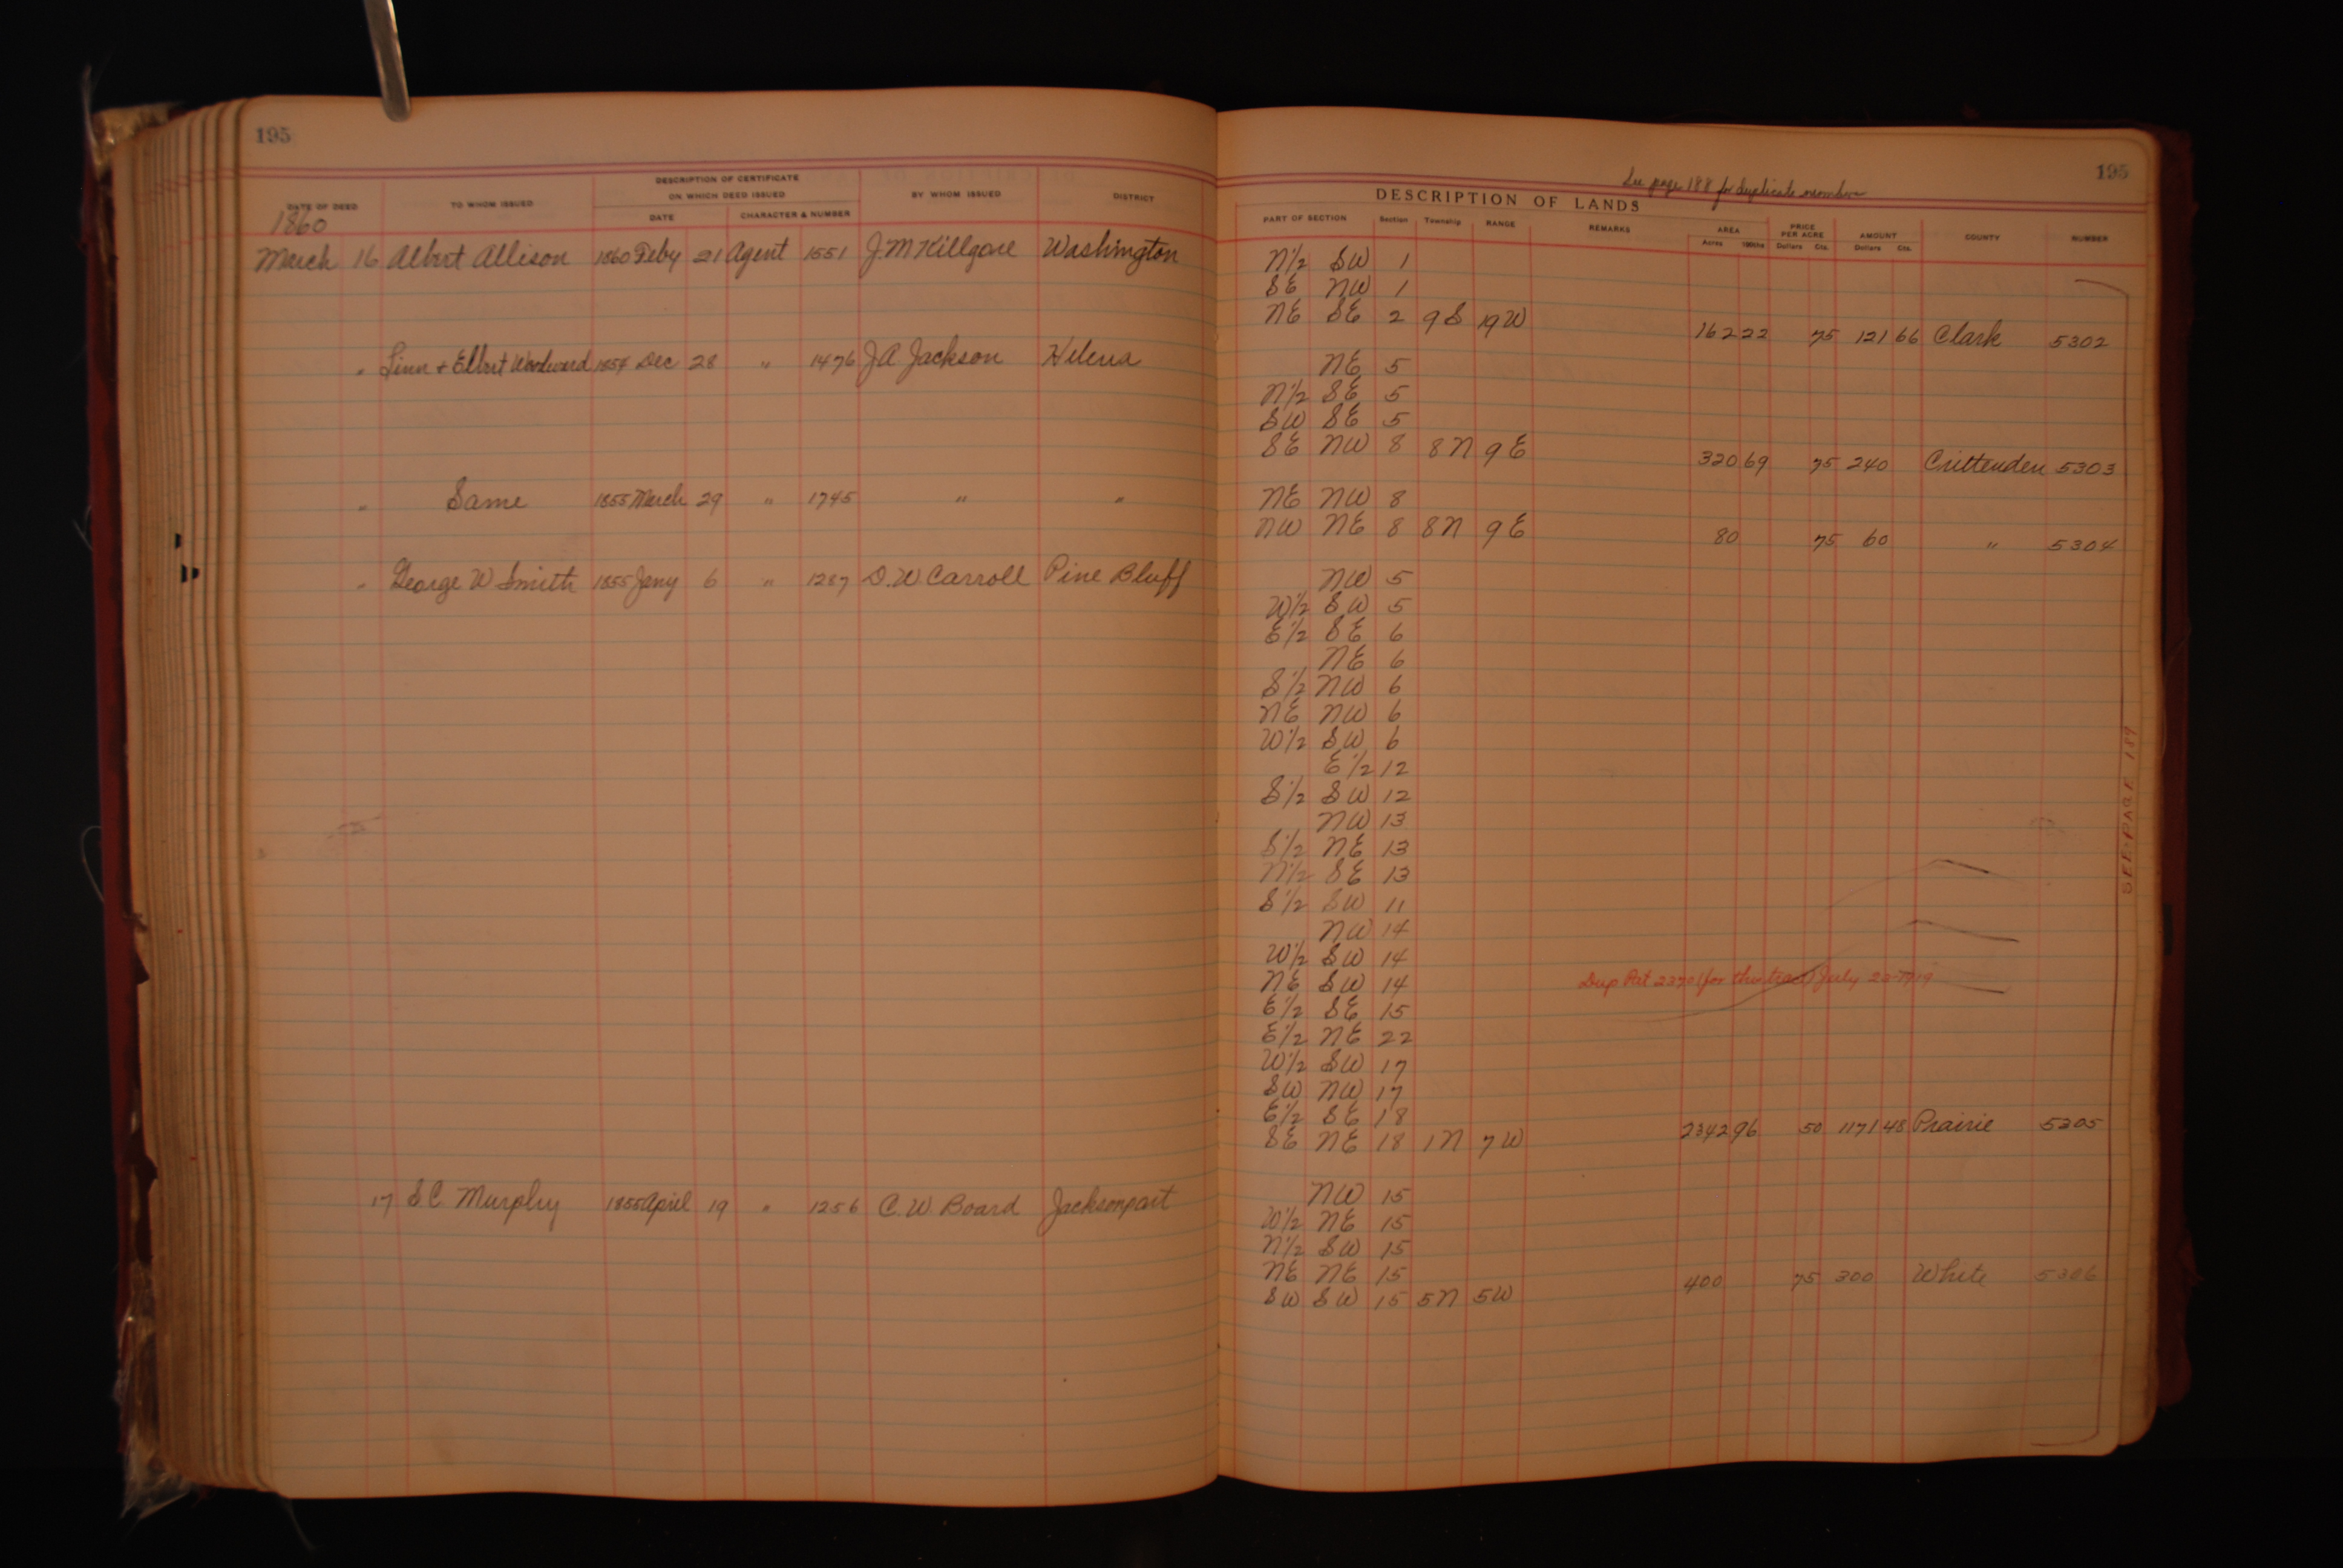 195
DATE OF DEED TO WHOM ISSUED DESCRIPTION OF CERTIFICATE ON WHICH DEED ISSUED DATE CHARACTER & NUMBER BY WHOM ISSUED DISTRICT
1860
March 16 Albert Allison 1860 Feby 21 Agent 1551 J. M Killgore Washington
" Linn & Elbert Woodward 1854 Dec 28 " 1476 J A Jackson Helena
" Same 1855 March 29 " 1745 " "
" George W Smith 1855 Jany 6 " 1287 D. W Carroll Pine Bluff
17 S. C Murphy 1855 April 19 " 1256 C. W Board Jacksonport
195
See page 188 for duplicate numbers
DESCRIPTION OF LANDS
PART OF SECTION Section Township RANGE REMARKS AREA Acres 100ths PRICE PER ACRE Dollars Cts. AMOUNT Dollars Cts. COUNTY NUMBER
N½ SW 1
SE NW 1
NE SE 2 9 S 19 W 162 22 75 121 66 Clark 5302
NE 5
N½ SE 5
SW SE 5
SE NW 8 8 N 9 E 320 69 75 240 Crittenden 5303
NE NW 8
NW NE 8 8 N 9 E 80 75 60 " 5304
NW 5
W½ SW 5
E½ SE 6
NE 6
S½ NW 6
NE NW 6
W½ SW 6
E½ 12
S½ SW 12
NW 13
S½ NE 13
N½ SE 13
S½ SW 11
NW 14
W½ SW 14
NE SW 14 Dup Pat 2390 (for this tract) July 23-1919
E½ SE 15
E½ NE 22
W½ SW 17
SW NW 17
E½ SE 18
SE NE 18 1 N 7 W 2342 96 50 1171 48 Prairie 5305
NW 15
W½ NE 15
N½ SW 15
NE NE 15
SW SW 15 5 N 5 W 400 75 300 White 5306
SEE PAGE 189